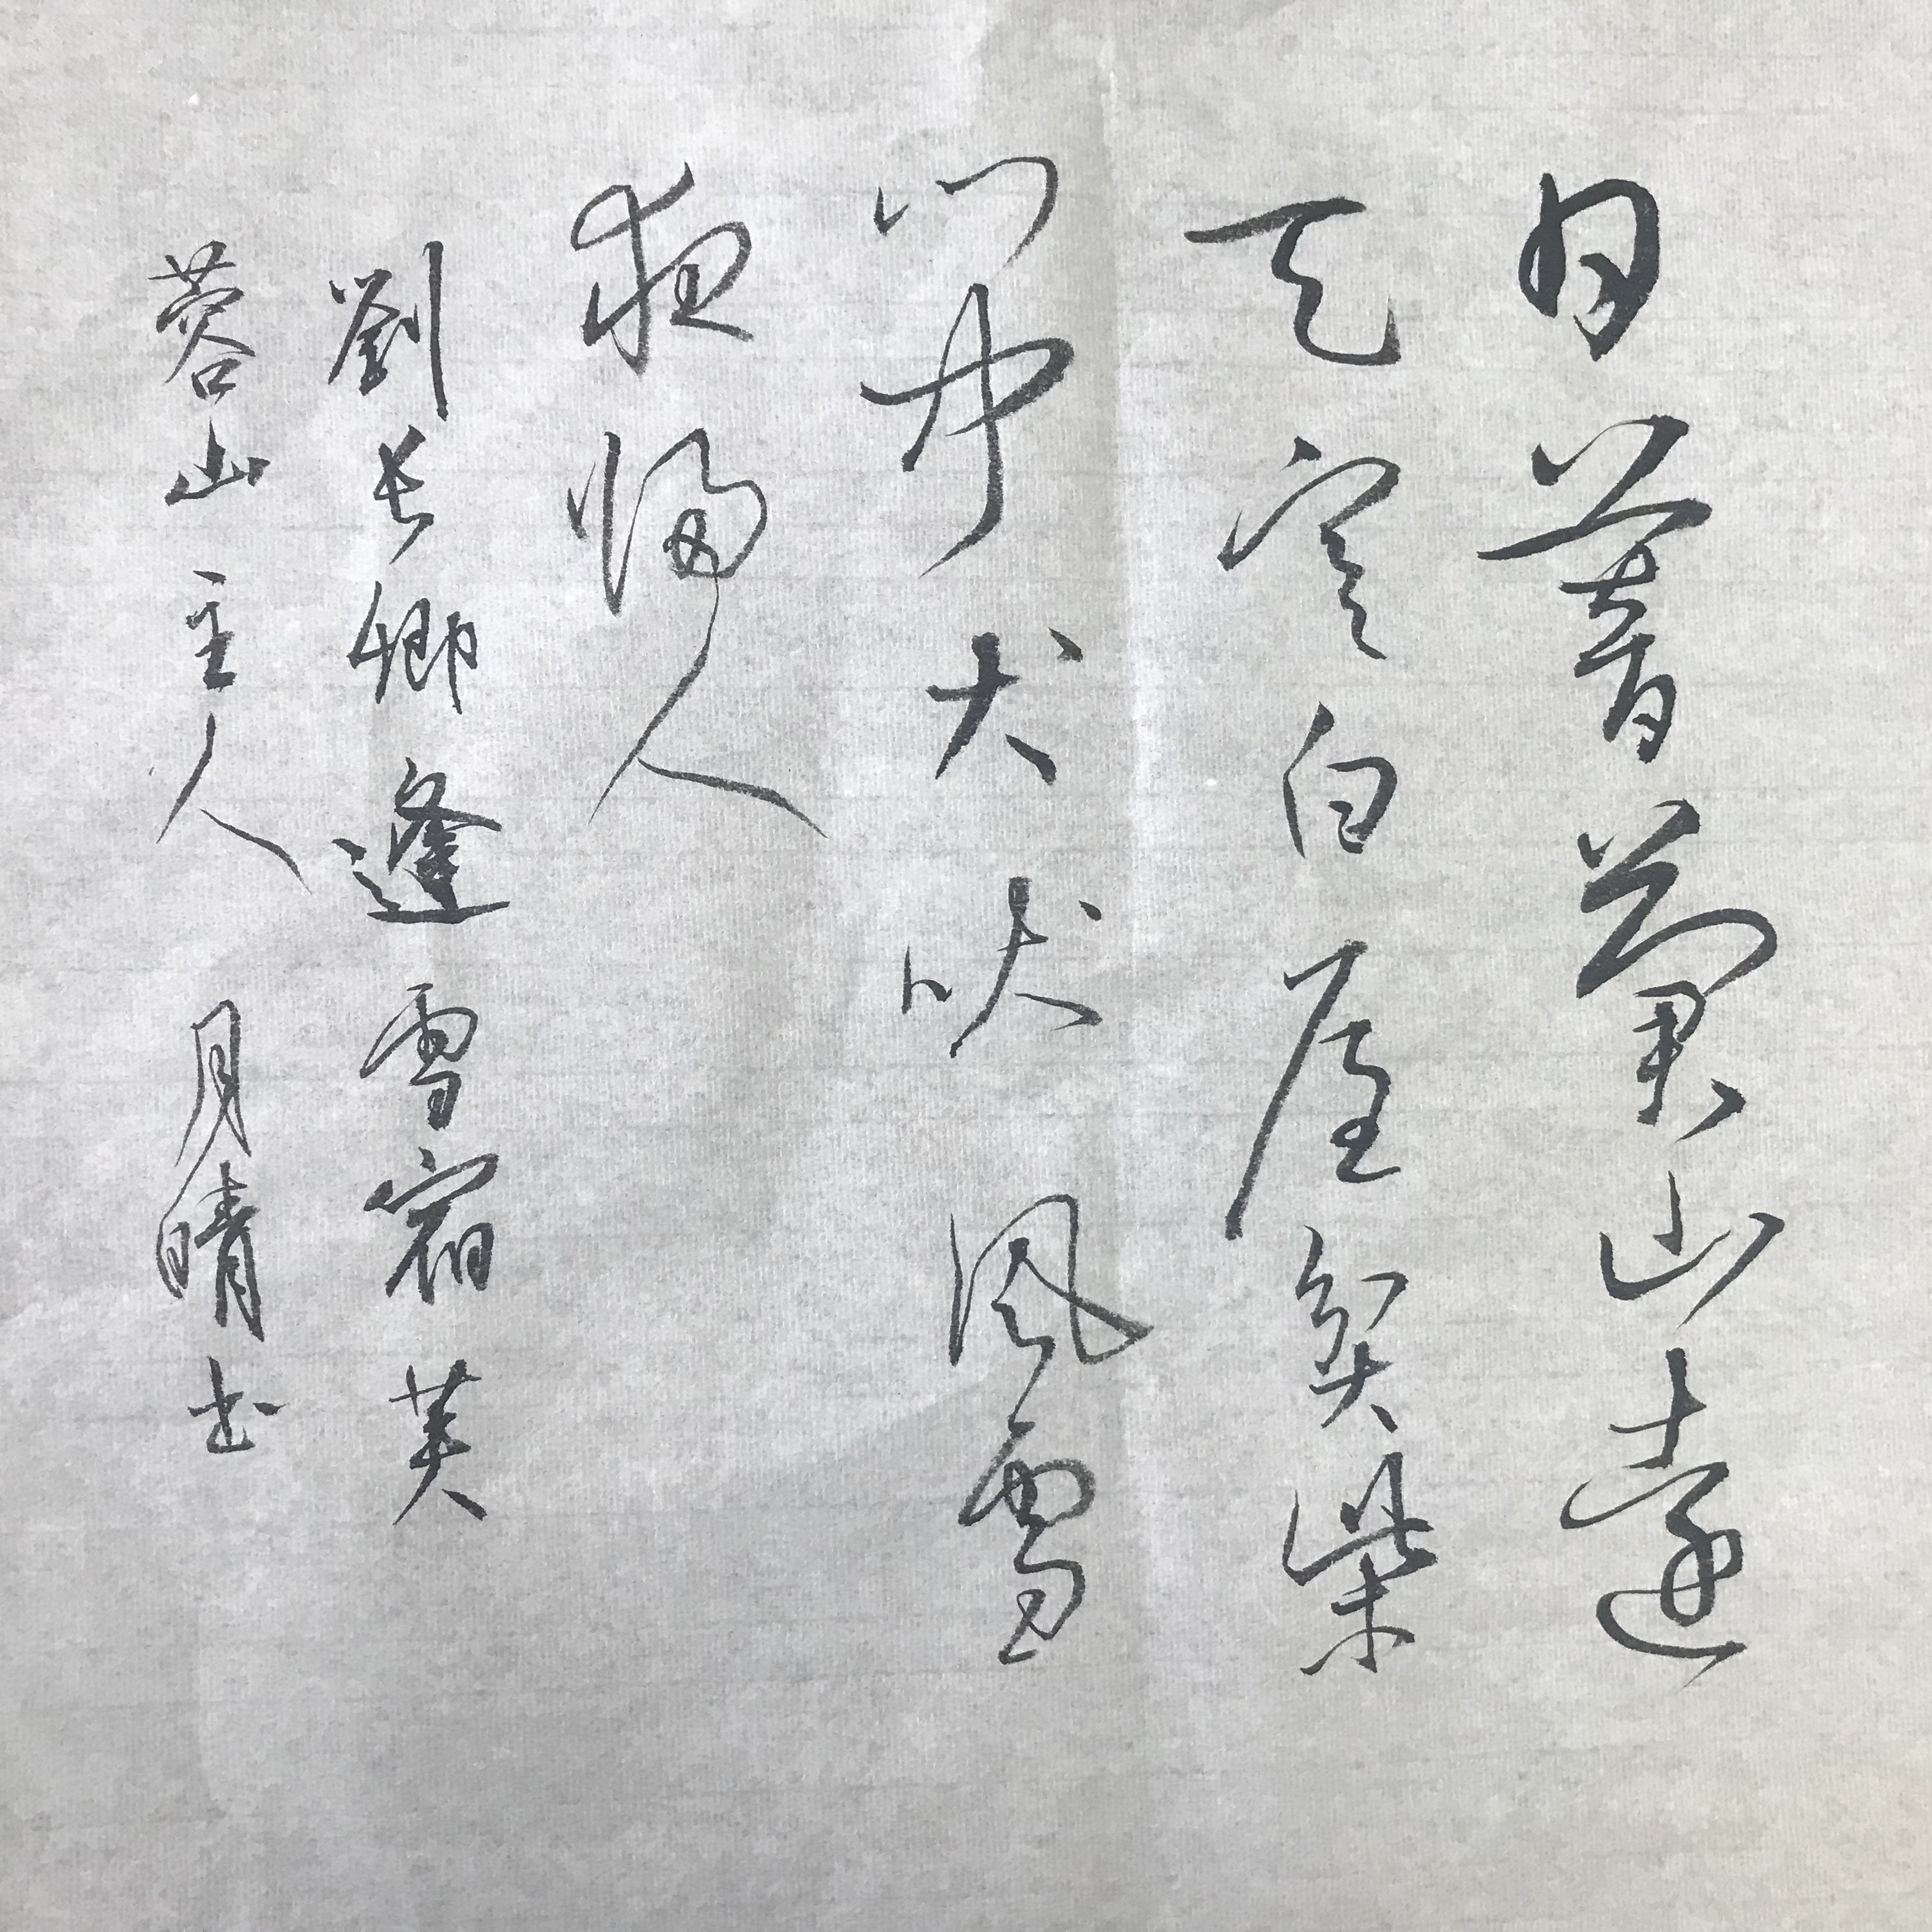 日暮蒼山遠
天寒白屋貧柴
門聞犬吠風雪
夜歸人
劉長卿逢雪宿芙
蓉山主人 月晴书